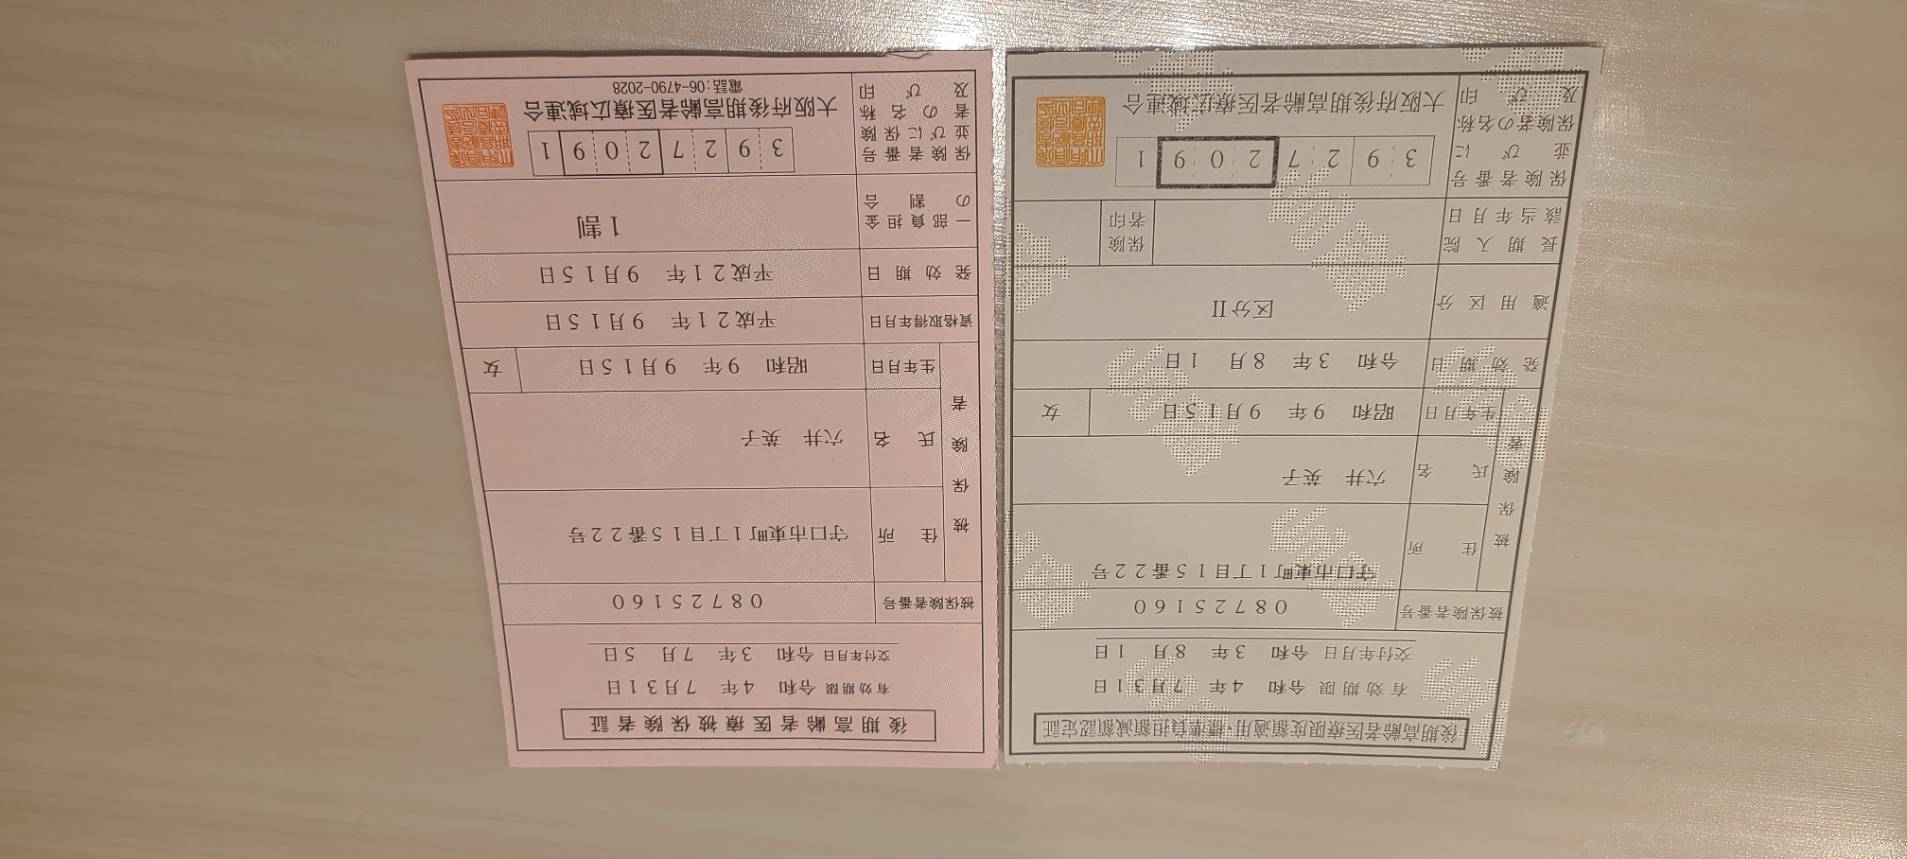 後期高齢者医療被保険者証
有効期限 令和 4年 7月31日
交付年月日 令和 3年 7月 5日
被保険者番号 08725160
被保険者
住所 守口市東町1丁目15番22号
氏名 穴井 英子
生年月日 昭和 9年 9月15日 女
資格取得年月日 平成21年 9月15日
発効期日 平成21年 9月15日
一部負担金の割合 1割
保険者番号並びに保険者の名称及び印
39272091
大阪府後期高齢者医療広域連合
電話:06-4790-2028
後期高齢者医療限度額適用・標準負担額減額認定証
有効期限 令和 4年 7月31日
交付年月日 令和 3年 8月 1日
被保険者番号 08725160
被保険者
住所 守口市東町1丁目15番22号
氏名 穴井 英子
生年月日 昭和 9年 9月15日 女
発効期日 令和 3年 8月 1日
適用区分 区分II
長期入院該当年月日 保険者印
保険者番号並びに保険者の名称及び印
39272091
大阪府後期高齢者医療広域連合